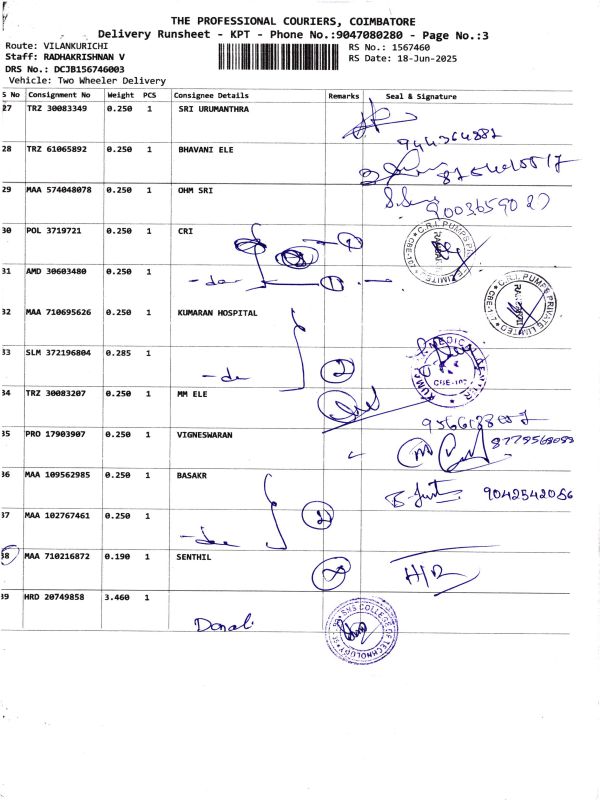 THE PROFESSIONAL COURIERS, COIMBATORE
Delivery Runsheet - KPT - Phone No.:9047080280 - Page No.:3
Route: VILANKURICHI
RS No.: 1567460
Staff: RADHAKRISHNAN V
RS Date: 18-Jun-2025
DRS No.: DCJB156746003
Vehicle: Two Wheeler Delivery
S No Consignment No Weight PCS Consignee Details Remarks Seal & Signature
27 TRZ 30083349 0.250 1 SRI URUMANTHRA
944364881
28 TRZ 61065892 0.250 1 BHAVANI ELE
29 MAA 574048078 0.250 1 OHM SRI
9003659027
30 POL 3719721 0.250 1 CRI
C.R.I. PUMPS PRIVATE LIMITED
31 AMD 30603480 0.250 1
-do 1
C.R.I. PUMPS PRIVATE LIMITED
32 MAA 710695626 0.250 1 KUMARAN HOSPITAL
33 SLM 372196804 0.285 1
-do 2
34 TRZ 30083207 0.250 1 MM ELE
35 PRO 17903907 0.250 1 VIGNESWARAN
8779568083
36 MAA 109562985 0.250 1 BASAKR
9042542086
37 MAA 102767461 0.250 1
-do 2
38 MAA 710216872 0.190 1 SENTHIL
H/R
39 HRD 20749858 3.460 1
SNS COLLEGE OF TECHNOLOGY